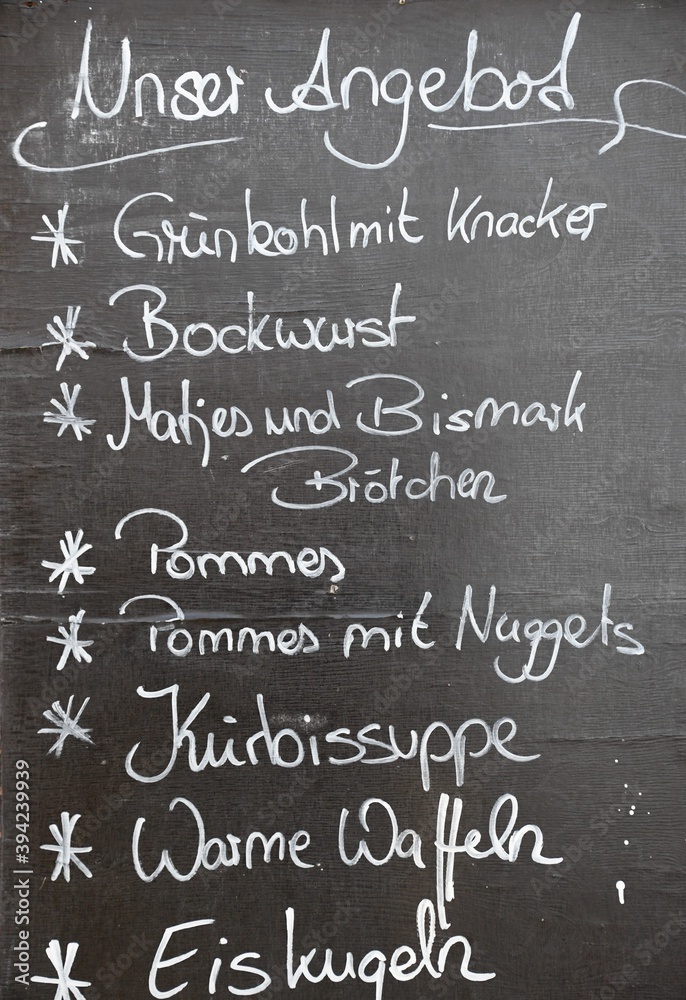 Unser Angebot
* Grünkohl mit Knacker
* Bockwurst
* Matjes und Bismark
Brötchen
* Pommes
* Pommes mit Nuggets
* Kürbissuppe
* Warme Waffeln
* Eiskugeln
Adobe Stock | #394239939